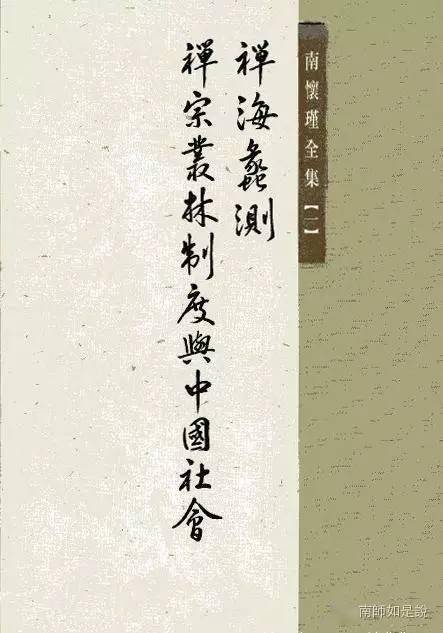 南懷瑾全集【一】
禪海蠡測
禪宗叢林制度與中國社會
南師如是說